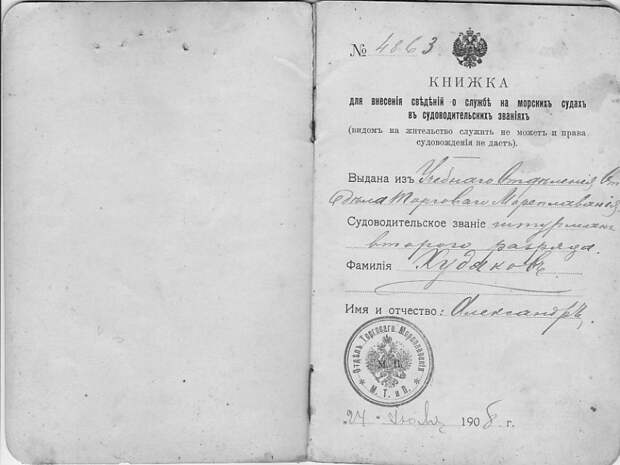 № 4863
КНИЖКА
для внесенія свѣдѣній о службѣ на морскихъ судахъ
въ судоводительскихъ званіяхъ
(видомъ на жительство служить не можетъ и права
судовожденія не даетъ).
Выдана изъ Учебнаго Отдѣленія От
дѣла Торговаго Мореплаванія
Судоводительское званіе штурмана
второго разряда.
Фамилія Худяковъ
Имя и отчество: Александръ
Отдѣлъ Торговаго Мореплаванія
М. П.
М. Т. и П.
24 1908 г.